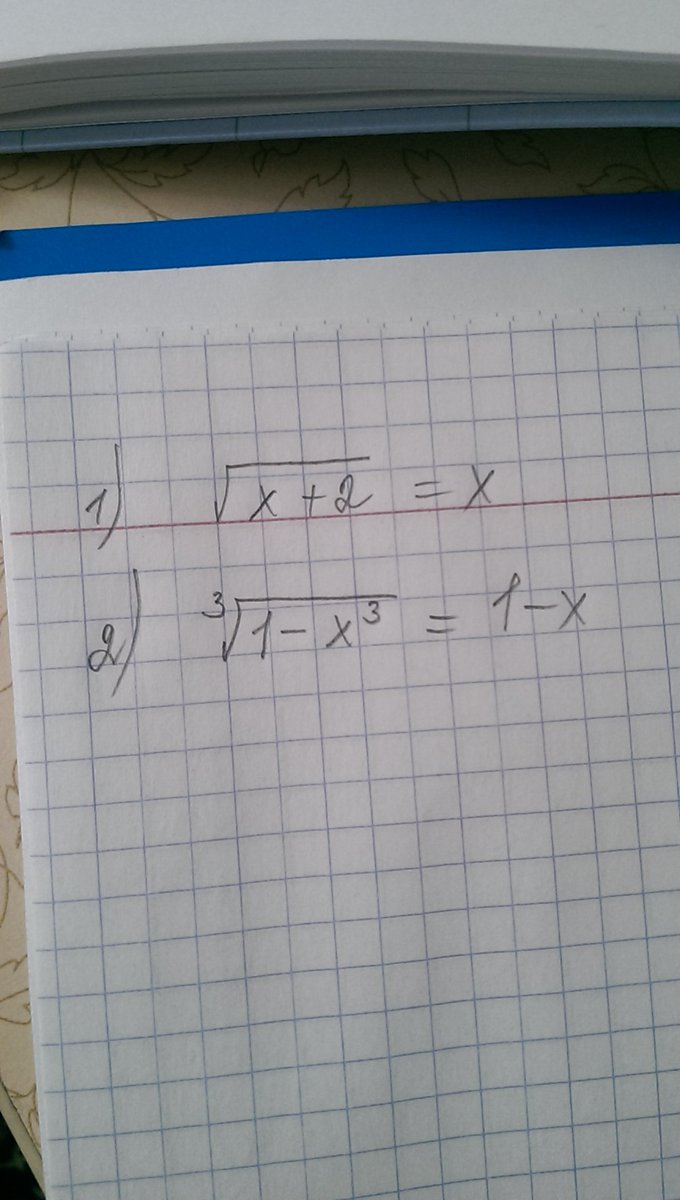 1) √(x+2) = x
2) ³√(1-x³) = 1-x